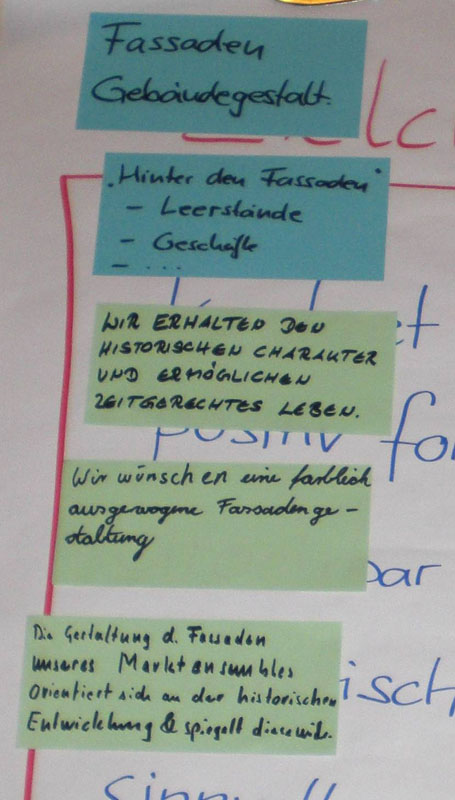 Fassaden
Gebäudegestalt.
"Hinter den Fassaden"
- Leerstände
- Geschäfte
- ...
WIR ERHALTEN DEN
HISTORISCHEN CHARAKTER
UND ERMÖGLICHEN
ZEITGERECHTES LEBEN.
positiv fo
Wir wünschen eine farblich
ausgewogene Fassadenge-
staltung
bar
Die Gestaltung d. Fassaden
unseres Marktensembles
orientiert sich an der historischen
Entwicklung & spiegelt diese
isch